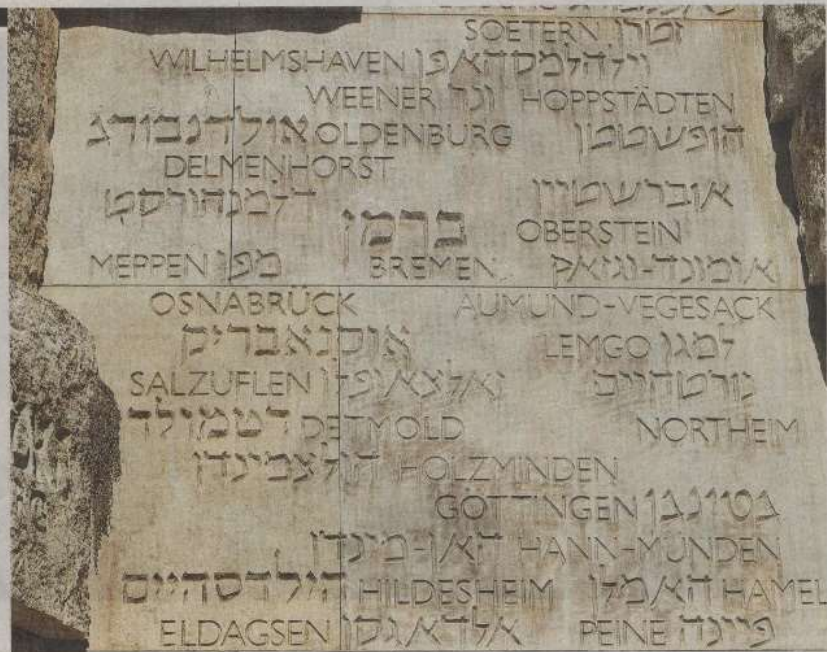 SOETERN זטרן
WILHELMSHAVEN וילהלמסהאפן
WEENER ונר HOPPSTÄDTEN
אולדנבורג OLDENBURG הופשטטן
DELMENHORST
דלמנהורסט אוברשטיין
ברמן OBERSTEIN
MEPPEN מפן BREMEN אומונד-וגזאק
OSNABRÜCK AUMUND-VEGESACK
אוסנאבריק LEMGO למגו
SALZUFLEN זאלצאופלן נורטהיים
דטמולד DETMOLD NORTHEIM
הולצמינדן HOLZMINDEN
GÖTTINGEN גטינגן
האן-מינדן HANN-MÜNDEN
הילדסהיים HILDESHEIM האמלן HAMEL
ELDAGSEN אלדאגסן PEINE פיינה